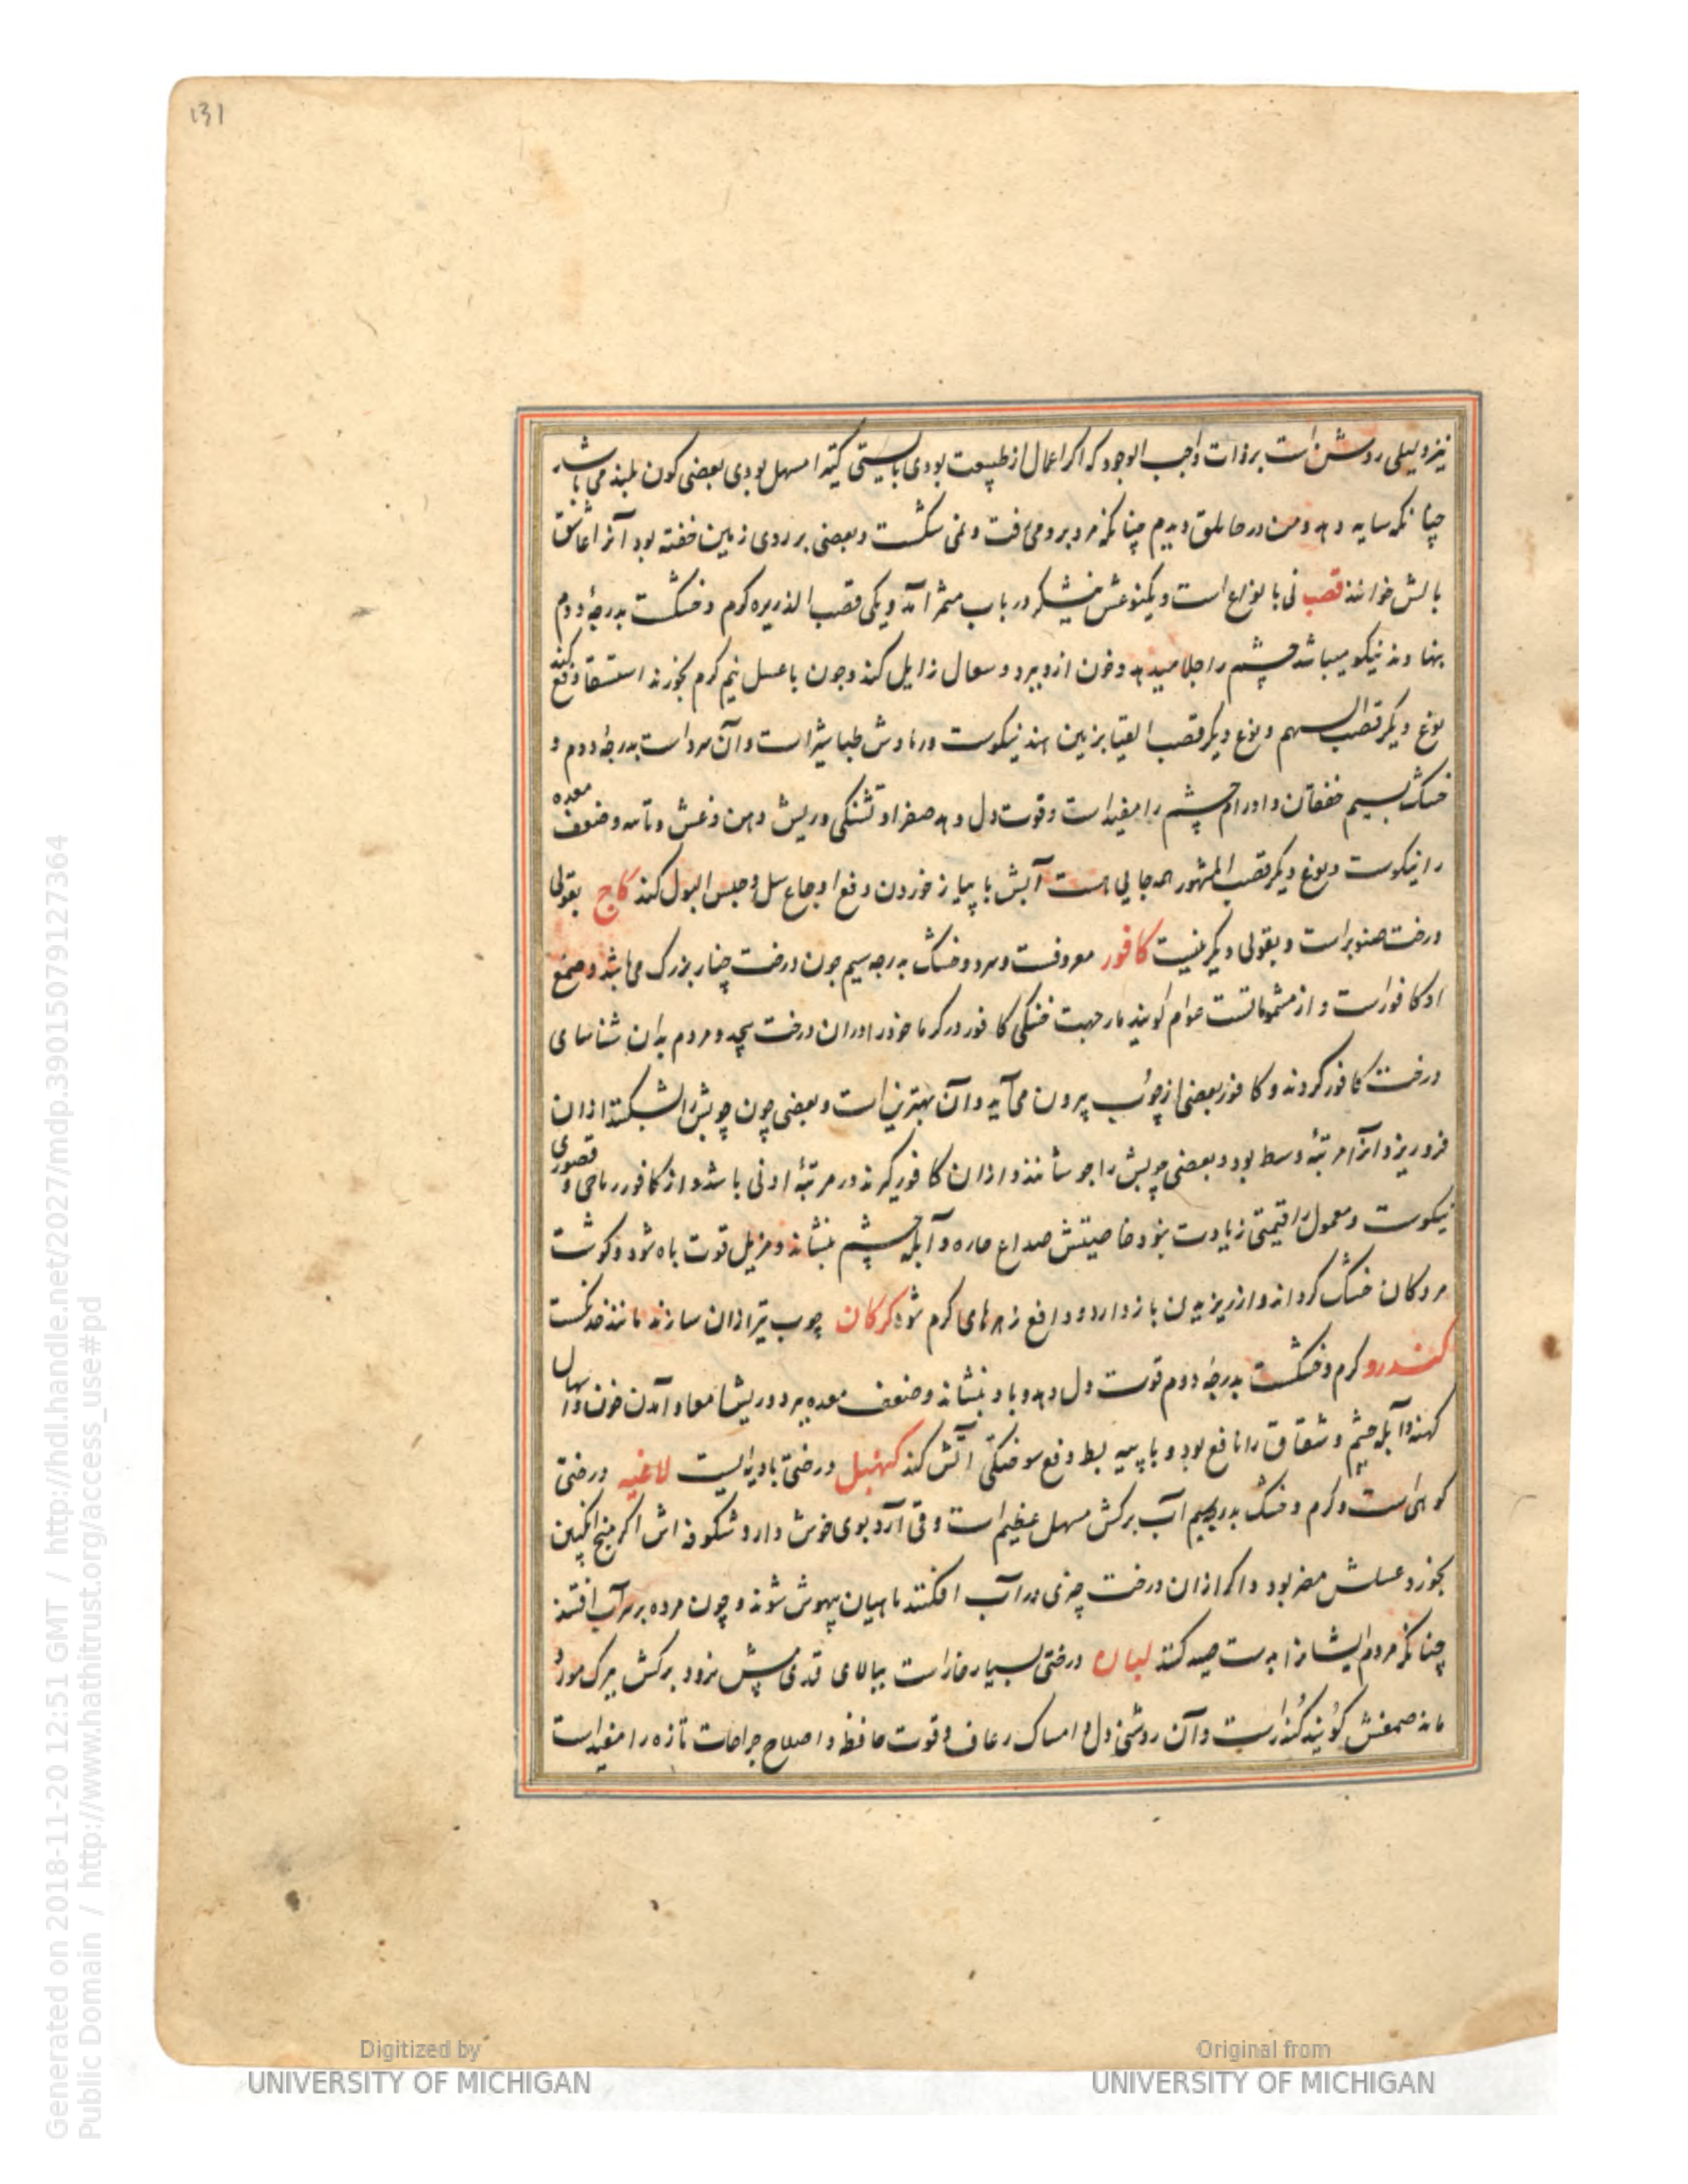 131
نیز دلیلی روشن است بر ذات واجب الوجود که اگر اعمال از طبیعت بودی بایستی کبیرا مسهل بودی بعضی کون بلند می باشد
چنانکه سایه دهد ومن در حاملق دیدم چنانکه مرد برو می رفت و نمی شکست و بعضی بر روی زمین خفته بود آنرا عاشق
بالش خوانند قصب نی با نواع است و یکنوعش نیشکر در باب مثمر آمد و یکی قصب الذریره کرم و خشکست بدرجهٔ دوم
بنهاوند نیکو میباشد چشم را جلا میدهد وخون ازو ببرد و سعال زایل کند وچون با عسل نیم کرم بخورند استسقا دفع کند
نوع دیکر قصب السهم و نوع دیکر قصب القنا بزمین هند نیکوست ورمادش طباشیر است وآن سرد است بدرجهٔ دوم و
خشک بسیم خفقان و اورام چشم را مفید است وقوت دل دهد صفرا و تشنکی وریش دهن وغش وتاسه وضعف معده
را نیکوست و نوع دیکر قصب المشهور همه جایی هست آبش با پیاز خوردن دفع اوجاع سل و حبس البول کند کاج بقولی
درخت صنوبر است و بقولی دیکر نیست کافور معروفست وسرد وخشک بدرجه سیم چون درخت چنار بزرک می باشد وصمغ
او کافور است و از مشموماتست عوام کویند مار جهت خنکی کافور در کرما خود را در ان درخت پیچد و مردم بدان شناسای
درخت کافور کردند و کافور بعضی از چوب بیرون می آید وآن بهترین است و بعضی چون چوبش را بشکنند ازان
فرو ریزد آنرا مرتبهٔ وسط بود و بعضی چوبش را جوشانند و ازان کافور کیرند در مرتبهٔ ادنی باشد و از کافور ریاحی و قصوری
نیکوست و معمول را قیمتی زیادت نبود خاصیتش صداع حاره و آبله چشم بنشاند و مزیل قوت باه شود و کوشت
مردکان خشک کرداند و از ریزیدن باز دارد و دافع زهرهای کرم شود کرکان چوب تیر ازان سازند مانند خدنکست
کندرو کرم و خشکست بدرجهٔ دوم قوت دل دهد و باد بنشاند و ضعف معده ببرد و ریشها معا و آمدن خون و اسهال
کهنه و آبله چشم و شقاق را نافع بود و با پیه بط دفع سوختکی آتش کند کهنبل درختی بادیه ایست لاغیه درختی
کوهی است و کرم و خشک بدرجه سیم آب برکش مسهل عظیم است و قی آرد بوی خوش دارد شکوفه اش اکر منج انکبین
بخورد عسلش مضر بود و اکر ازان درخت چیزی در آب افکنند ماهیان بیهوش شوند و چون مرده بر سر آب افتند
چنانکه مردم ایشانرا بدست صید کنند لبان درختی بسیار خار است ببالای قدی بیش نرود و برکش ببرک مورد
ماند صمغش کویند کندر است و آن روشنی دل و امساک رعاف و قوت حافظه و اصلاح جراحات تازه را مفید است
Digitized by
UNIVERSITY OF MICHIGAN
Original from
UNIVERSITY OF MICHIGAN
Generated on 2018-11-20 12:51 GMT / http://hdl.handle.net/2027/mdp.39015079127364
Public Domain / http://www.hathitrust.org/access_use#pd